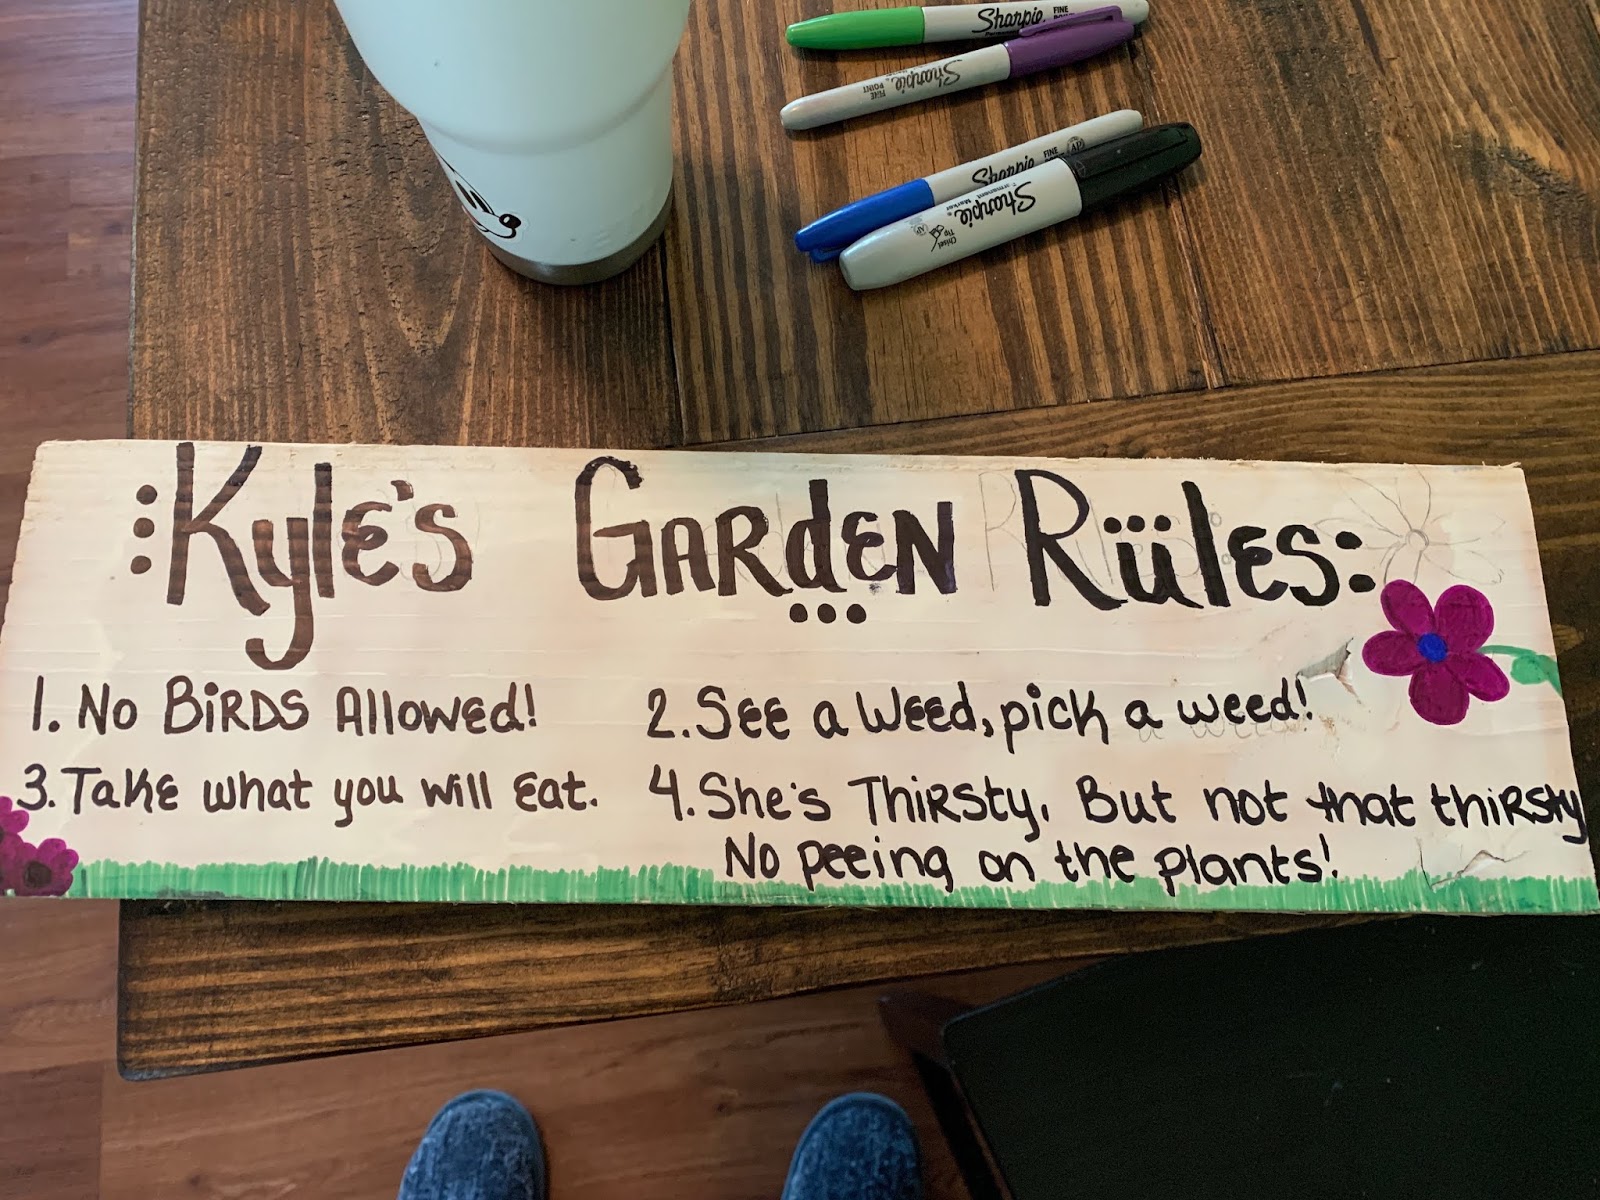 Sharpie FINE POINT
Sharpie FINE POINT
Sharpie FINE
Sharpie Permanent Marker Chisel Tip
:Kyle's Garden Rüles:
1. No Birds Allowed!
2. See a weed, pick a weed!
3. Take what you will eat.
4. She's Thirsty, But not that thirsty
No peeing on the plants!